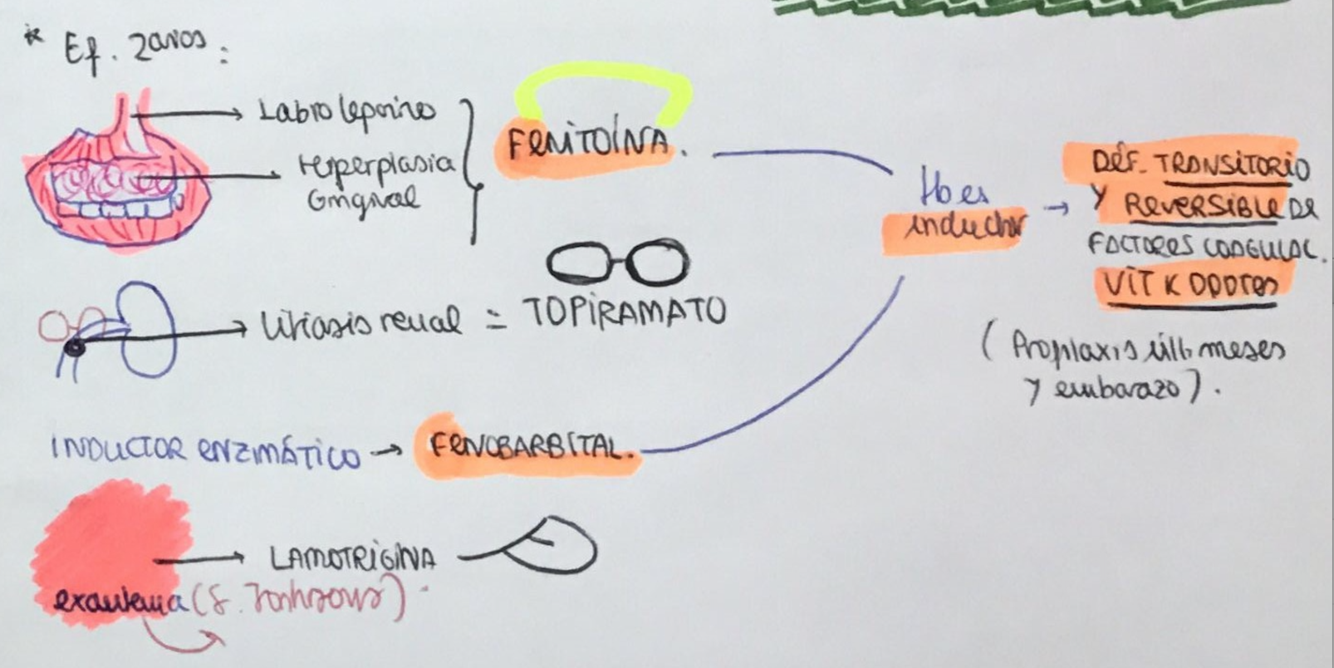 * Ef. 2arios:
Labio leporino
Hiperplasia
Gingival
FENITOÍNA.
Litiasis renal = TOPIRAMATO
INDUCTOR ENZIMÁTICO → FENOBARBITAL.
LAMOTRIGINA
exantema (S. Johnsons)
inductor →
DÉF. TRANSITORIO
Y REVERSIBLE DE
FACTORES COAGULAC.
VIT K DDTES
(Proplaxis últ. meses
y embarazo).